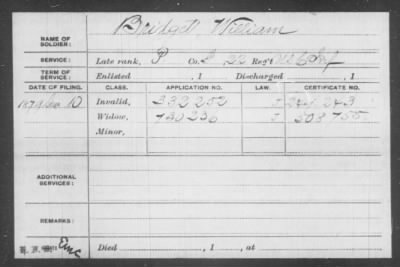 NAME OF SOLDIER: Bridgett, William
SERVICE: Late rank, P Co. 22 Reg't Inf
TERM OF SERVICE: Enlisted , 1 Discharged , 1
DATE OF FILING. CLASS. APPLICATION NO. LAW. CERTIFICATE NO.
10 Invalid, 332 252 J 241 243
Widow, 780 236 J 508 755
Minor,
ADDITIONAL SERVICES:
REMARKS:
Died , 1 , at